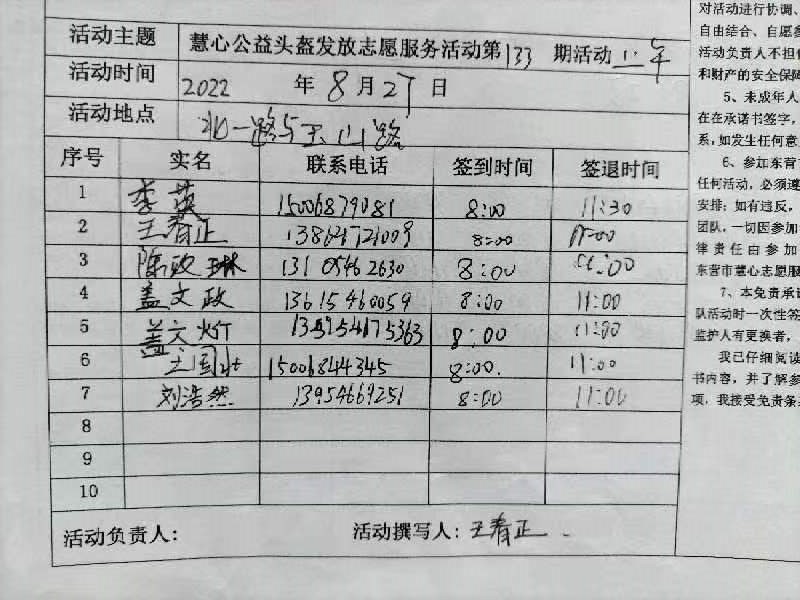 活动主题 慧心公益头盔发放志愿服务活动第133期活动 上午
活动时间 2022 年 8 月 27 日
活动地点 北一路与玉山路
序号 实名 联系电话 签到时间 签退时间
1 李英 15006879081 8:00 11:30
2 王春正 13864721009 8:00 11:00
3 陈政琳 13105462630 8:00 11:00
4 盖文政 13615460059 8:00 11:00
5 盖文 8:00 11:00
6 王国 15006844345 8:00. 11:00
7 刘浩然 13954669251 8:00 11:00
8
9
10
活动负责人: 活动撰写人: 王春正
对活动进行协调、
自由结合、自愿参
活动负责人不担
和财产的安全保障
5、未成年人
在在承诺书签字,
系,如发生任何意
6、参加东营
任何活动,必须遵
安排;如有违反,
团队,一切因参加
律责任由参加
东营市慧心志愿服
7、本免责承诺
队活动时一次性签
监护人有更换者,
我已仔细阅读
书内容,并了解参
项,我接受免责条